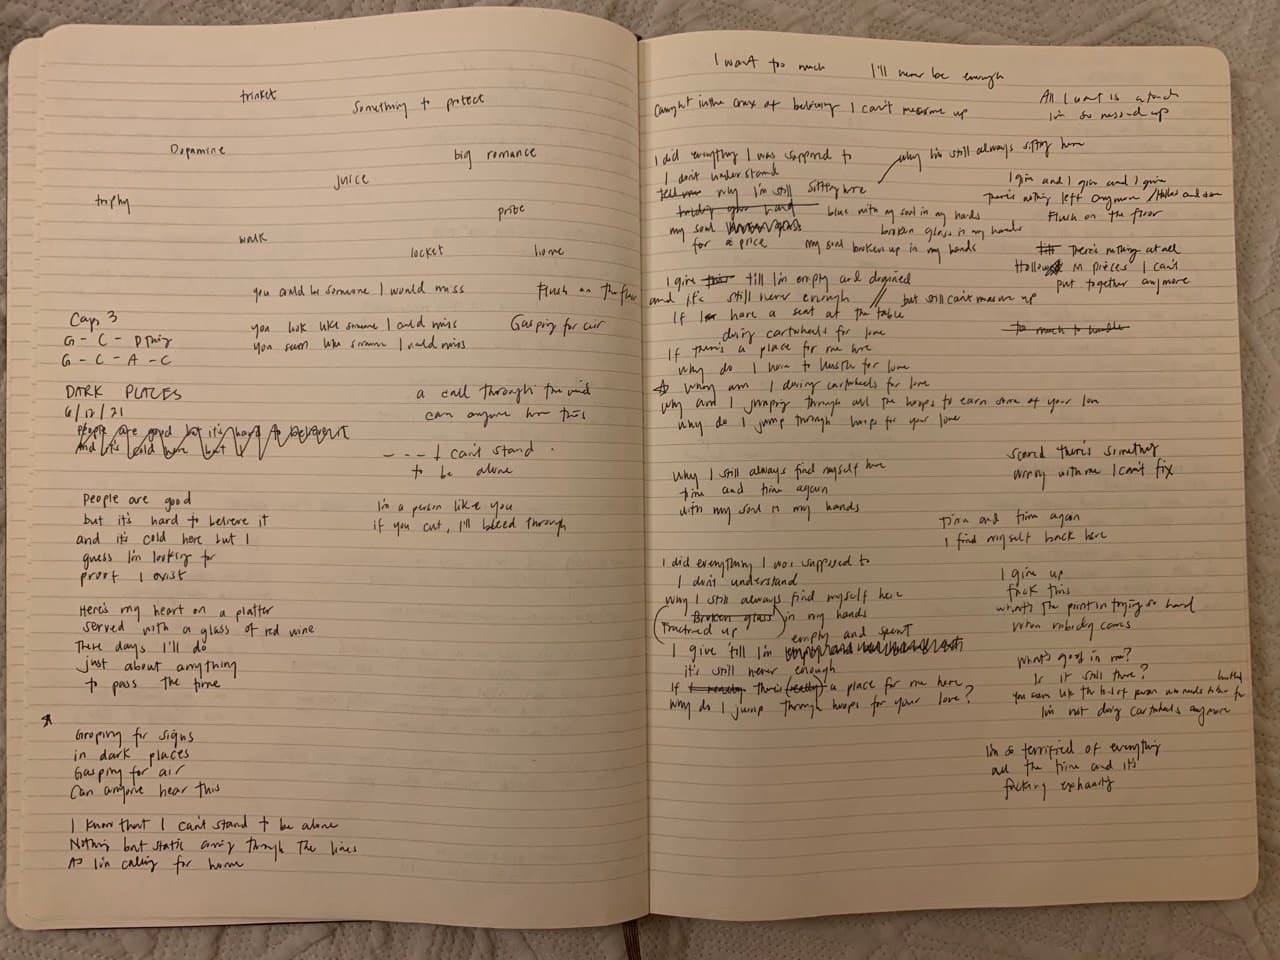 trinket
something to protect
Dopamine
big romance
juice
trophy
probe
walk
locket
home
you could be someone I would miss
Flush on the floor
you look like someone I could miss
you seem like someone I could miss
Gasping for air
Capo 3
G - C - D thing
G - C - A - C
DARK PLACES
6/12/21
People are good but it's hard to believe it
And it's cold here but I
a call through the void
can anyone hear this
---I can't stand.
to be alone
People are good
but it's hard to believe it
and it's cold here but I
guess I'm looking for
proof I exist
I'm a person like you
if you cut, I'll bleed through
Here's my heart on a platter
served with a glass of red wine
These days I'll do
just about anything
to pass the time
Groping for signs
in dark places
Gasping for air
Can anyone hear this
I know that I can't stand to be alone
Nothing but static coming through the lines
As I'm calling for home
I want too much
I'll never be enough
Caught in the crux of believing I can't measure up
All I want is a
I'm so messed up
I did everything I was supposed to
I don't understand
tell me why I'm still sitting here
why I'm still always sitting here
holding your hand
my soul
for a price
blue with my soul in my hands
broken glass in my hands
my soul broken up in my hands
I give and I give and I give
There's nothing left anymore / Hollow and
Flush on the floor
There's nothing at all
Hollow in pieces I can't
put together anymore
I give till I'm empty and drained
and it's still never enough // but still can't measure up
If I have a seat at the table
doing cartwheels for love
too much to handle
If there's a place for me here
why do I have to hustle for love
why am I doing cartwheels for love
why am I jumping through all the hoops to earn some of your love
why do I jump through hoops for your love
why I still always find myself here
time and time again
with my soul in my hands
scared there's something
wrong with me I can't fix
time and time again
I find myself back here
I did everything I was supposed to
I don't understand
why I still always find myself here
Broken glass in my hands
Fractured up
empty and spent
I give 'till I'm
it's still never enough
If there's (really) a place for me here
why do I jump through hoops for your love?
I give up
fuck this
what's the point in trying so hard
when nobody cares
what's good in me?
Is it still there?
You seem like the kind of person who needs to be
I'm not doing cartwheels anymore
I'm so terrified of everything
all the time and it's
fucking exhausting